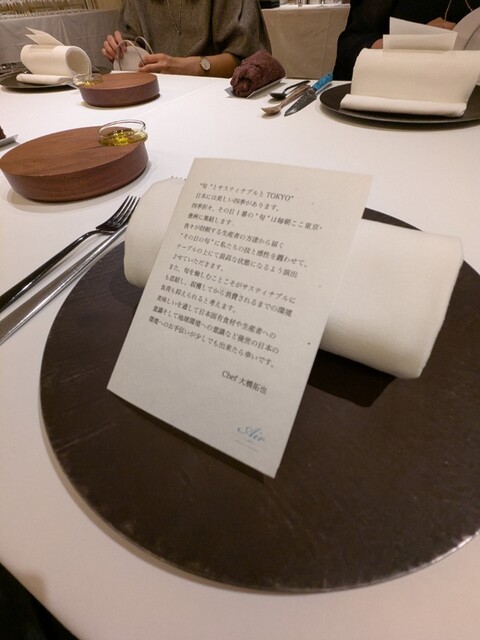 “旬”とサスティナブルとTOKYO”
日本には美しい四季があります。
四季折々、その日1番の“旬”は毎朝ここ東京・
豊洲に集結します。
我々が信頼する生産者の方達から届く
“その日の旬”に私たちの技と感性を纏わせて、
テーブルの上にて最高な状態になるよう演出
させていただきます。
また、旬を愉しむことこそがサスティナブルに
も直結し、収穫してから消費されるまでの環境
負荷も抑えられると考えます。
美味しいを通して日本固有食材や生産者への
意識そして地球環境への意識など後世の日本の
環境へのお手伝いが少しでも出来たら幸いです。
Chef 大橋拓也
Air